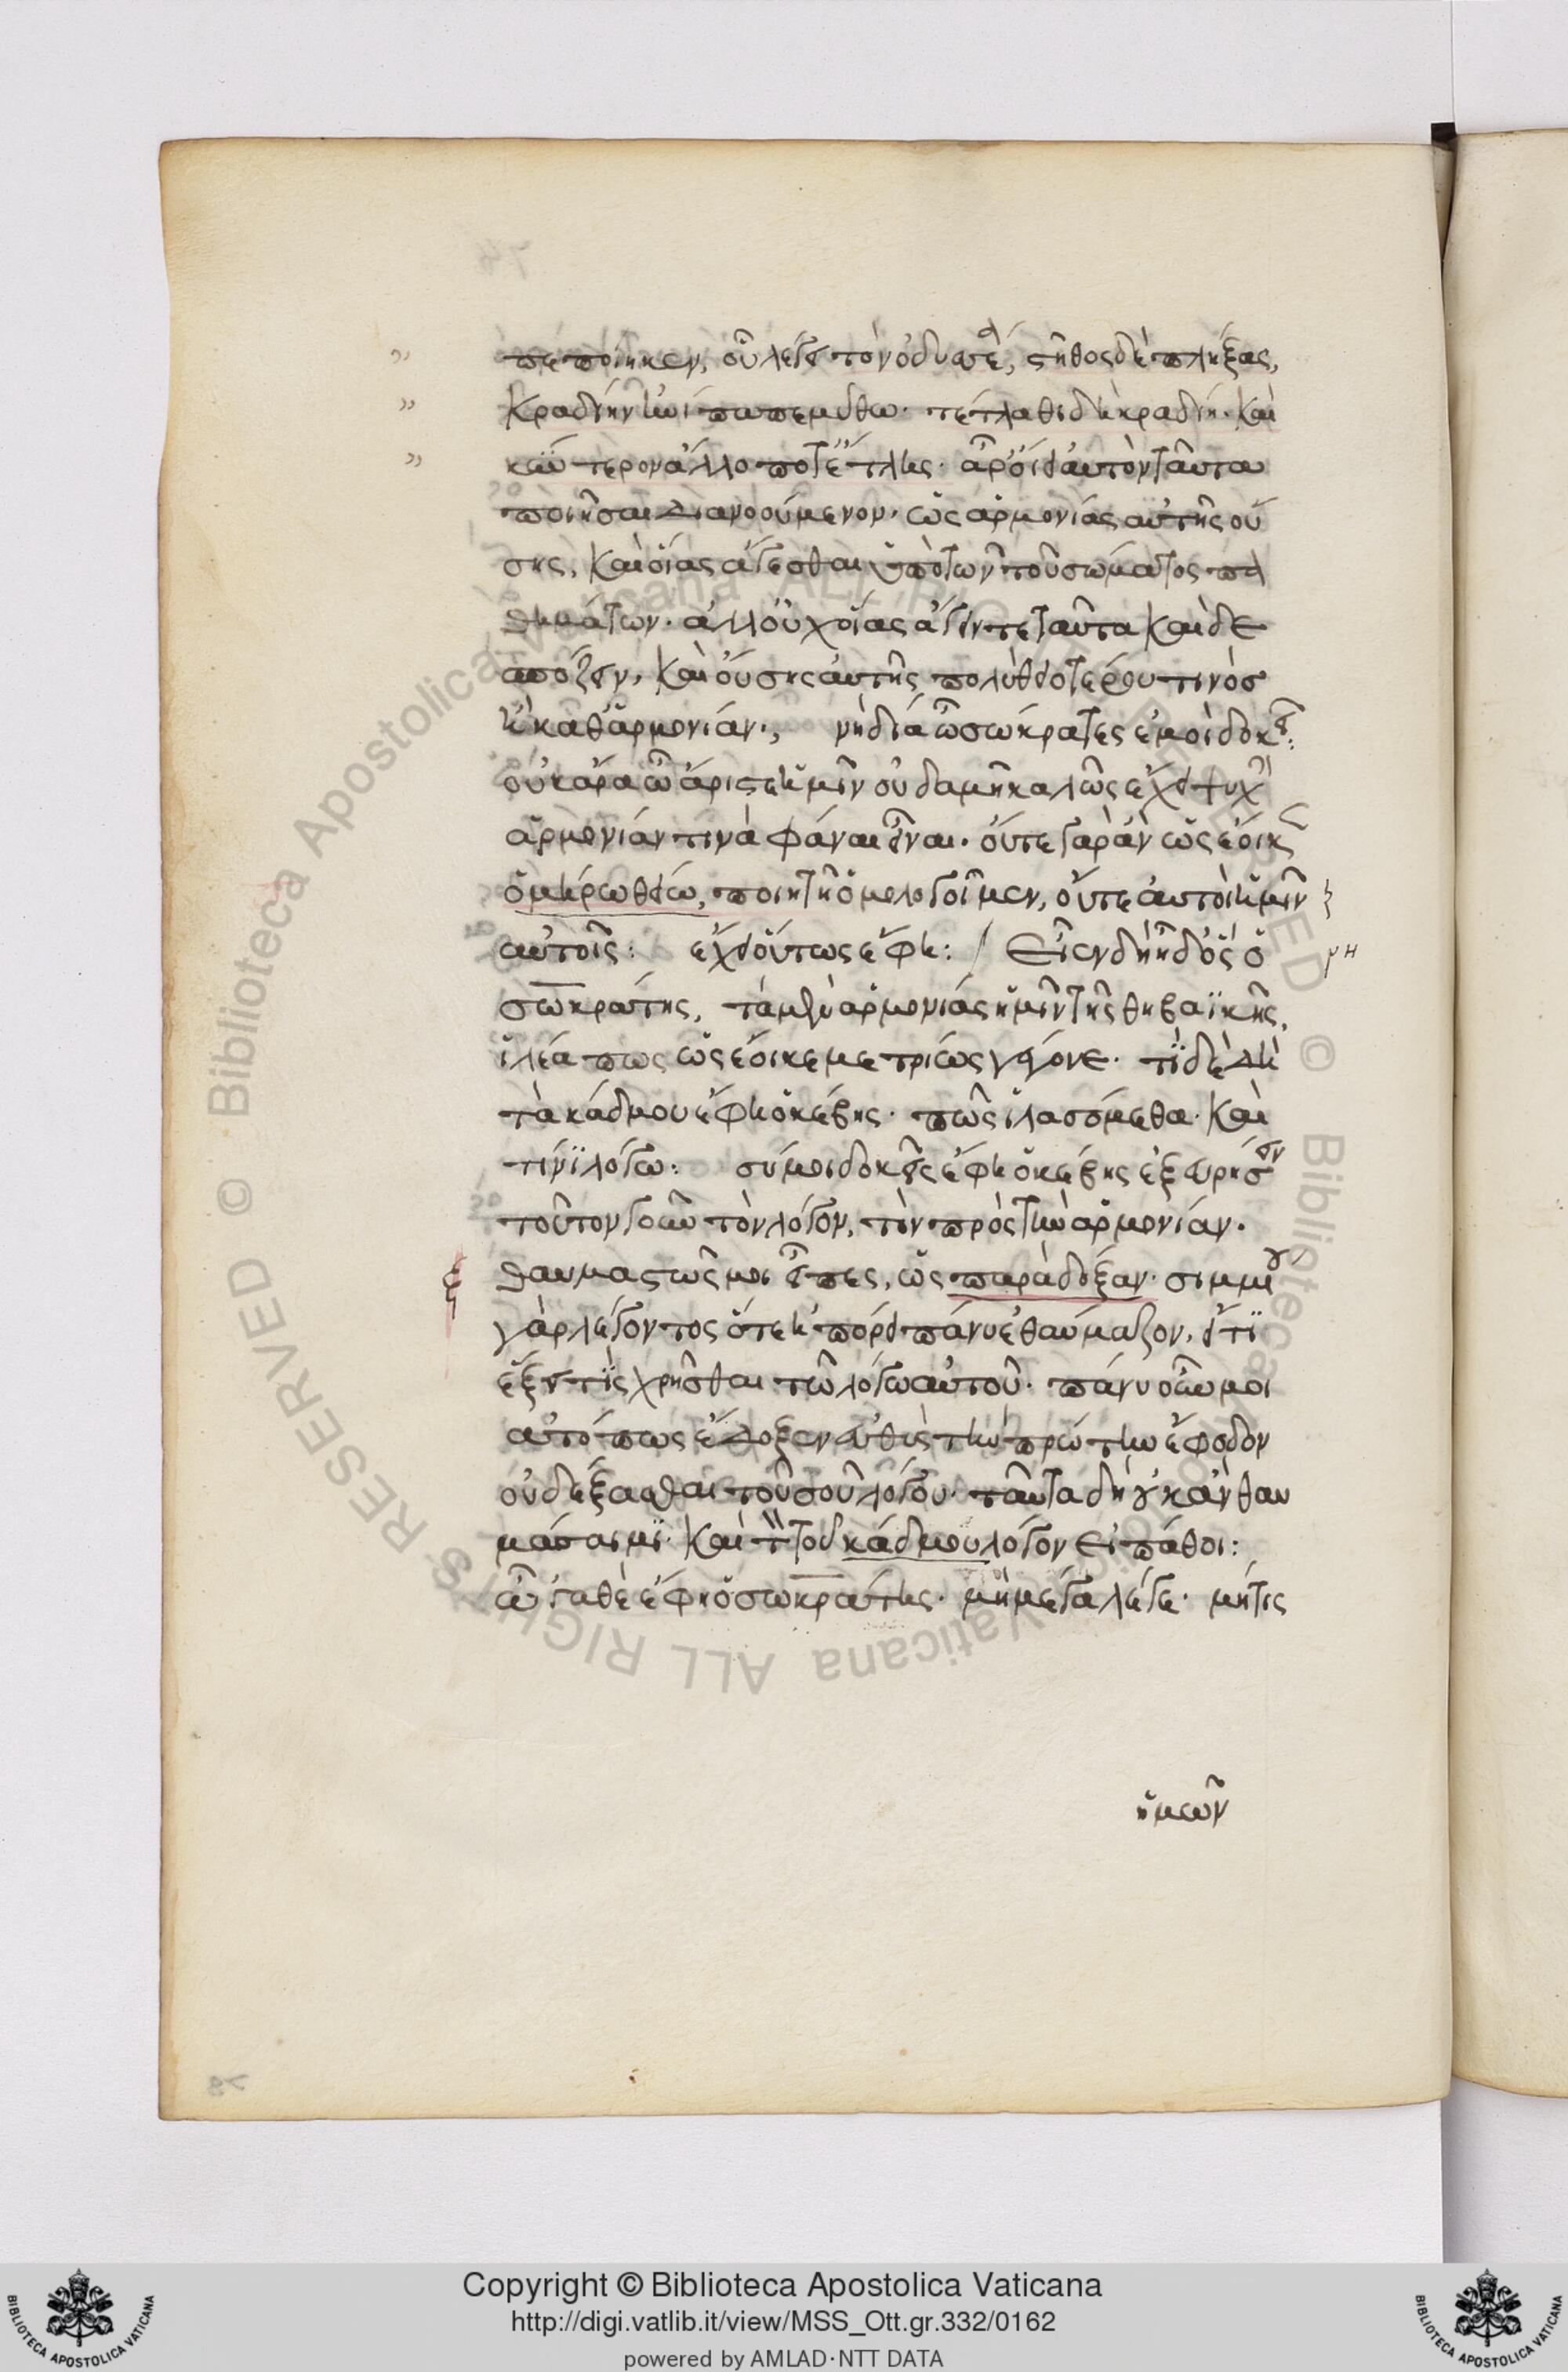 πεποίηκεν, οὗ λέγει τὸν ὀδυσσέα, στῆθος δὲ πλήξας,
κραδίην ἠνίπαπε μύθω· τέτλαθι δὴ κραδίη· καὶ
κύντερον ἄλλο ποτ' ἔτλης· ἆρ' οἴει αὐτὸν ταῦτα
ποιῆσαι διανοούμενον, ὡς ἁρμονίας αὐτῆς οὔ
σης, καὶ οἵας ἄγεσθαι ὑπὸ τῶν τοῦ σώματος πα
θημάτων· ἀλλ' οὐχ οἵας ἄγειν τε ταῦτα καὶ δε
σπόζειν, καὶ οὔσης αὐτῆς πολὺ θειοτέρου τινὸς
ἢ καθ' ἁρμονίαν·, νὴ δία ὦ σώκρατες ἐμοὶ δοκεῖ:
οὐκ ἄρα ὦ ἄριστε ἡμῖν οὐδαμῆ καλῶς ἔχει ψυχὴν
ἁρμονίαν τινὰ φάναι εἶναι· οὔτε γὰρ ἂν ὡς ἔοικεν
ὁμήρω θείω ποιητῆ ὁμολογοῖμεν, οὔτε αὐτοὶ ἡμῖν
αὐτοῖς: ἔχει οὕτως ἔφη: / Εἶεν δὴ ἦ δ' ὃς ὁ
σωκράτης, τὰ μὲν ἁρμονίας ἡμῖν τῆς θηβαϊκῆς,
ἵλεά πως ὡς ἔοικε μετρίως γέγονε· τί δὲ δὴ
τὰ κάδμου ἔφη ὦ κέβης· πῶς ἱλασόμεθα· καὶ
τίνι λόγω: σύ μοι δοκεῖς ἔφη ὁ κέβης ἐξευρήσειν
τοῦτον γοῦν τὸν λόγον, τὸν πρὸς τὴν ἁρμονίαν·
θαυμαστῶς μοι εἶπες, ὡς παρὰ δόξαν· σιμμίου
γὰρ λέγοντος ὅτε ἠπόρει πάνυ ἐθαύμαζον, εἴ τι
ἕξει τις χρῆσθαι τῶ λόγω αὐτοῦ· πάνυ οὖν μοι
ἀτόπως ἔδοξεν εὐθὺς τὴν πρώτην ἔφοδον
οὐ δέξασθαι τοῦ σοῦ λόγου· ταῦτα δὴ οὐκ ἂν θαυ
μάσαιμι· καὶ τὸν τοῦ κάδμου λόγον εἰ πάθοι:
ὦ 'γαθὲ ἔφη ὁ σωκράτης· μὴ μέγα λέγε· μή τις
ἡμῶν
Copyright © Biblioteca Apostolica Vaticana
http://digi.vatlib.it/view/MSS_Ott.gr.332/0162
powered by AMLAD·NTT DATA